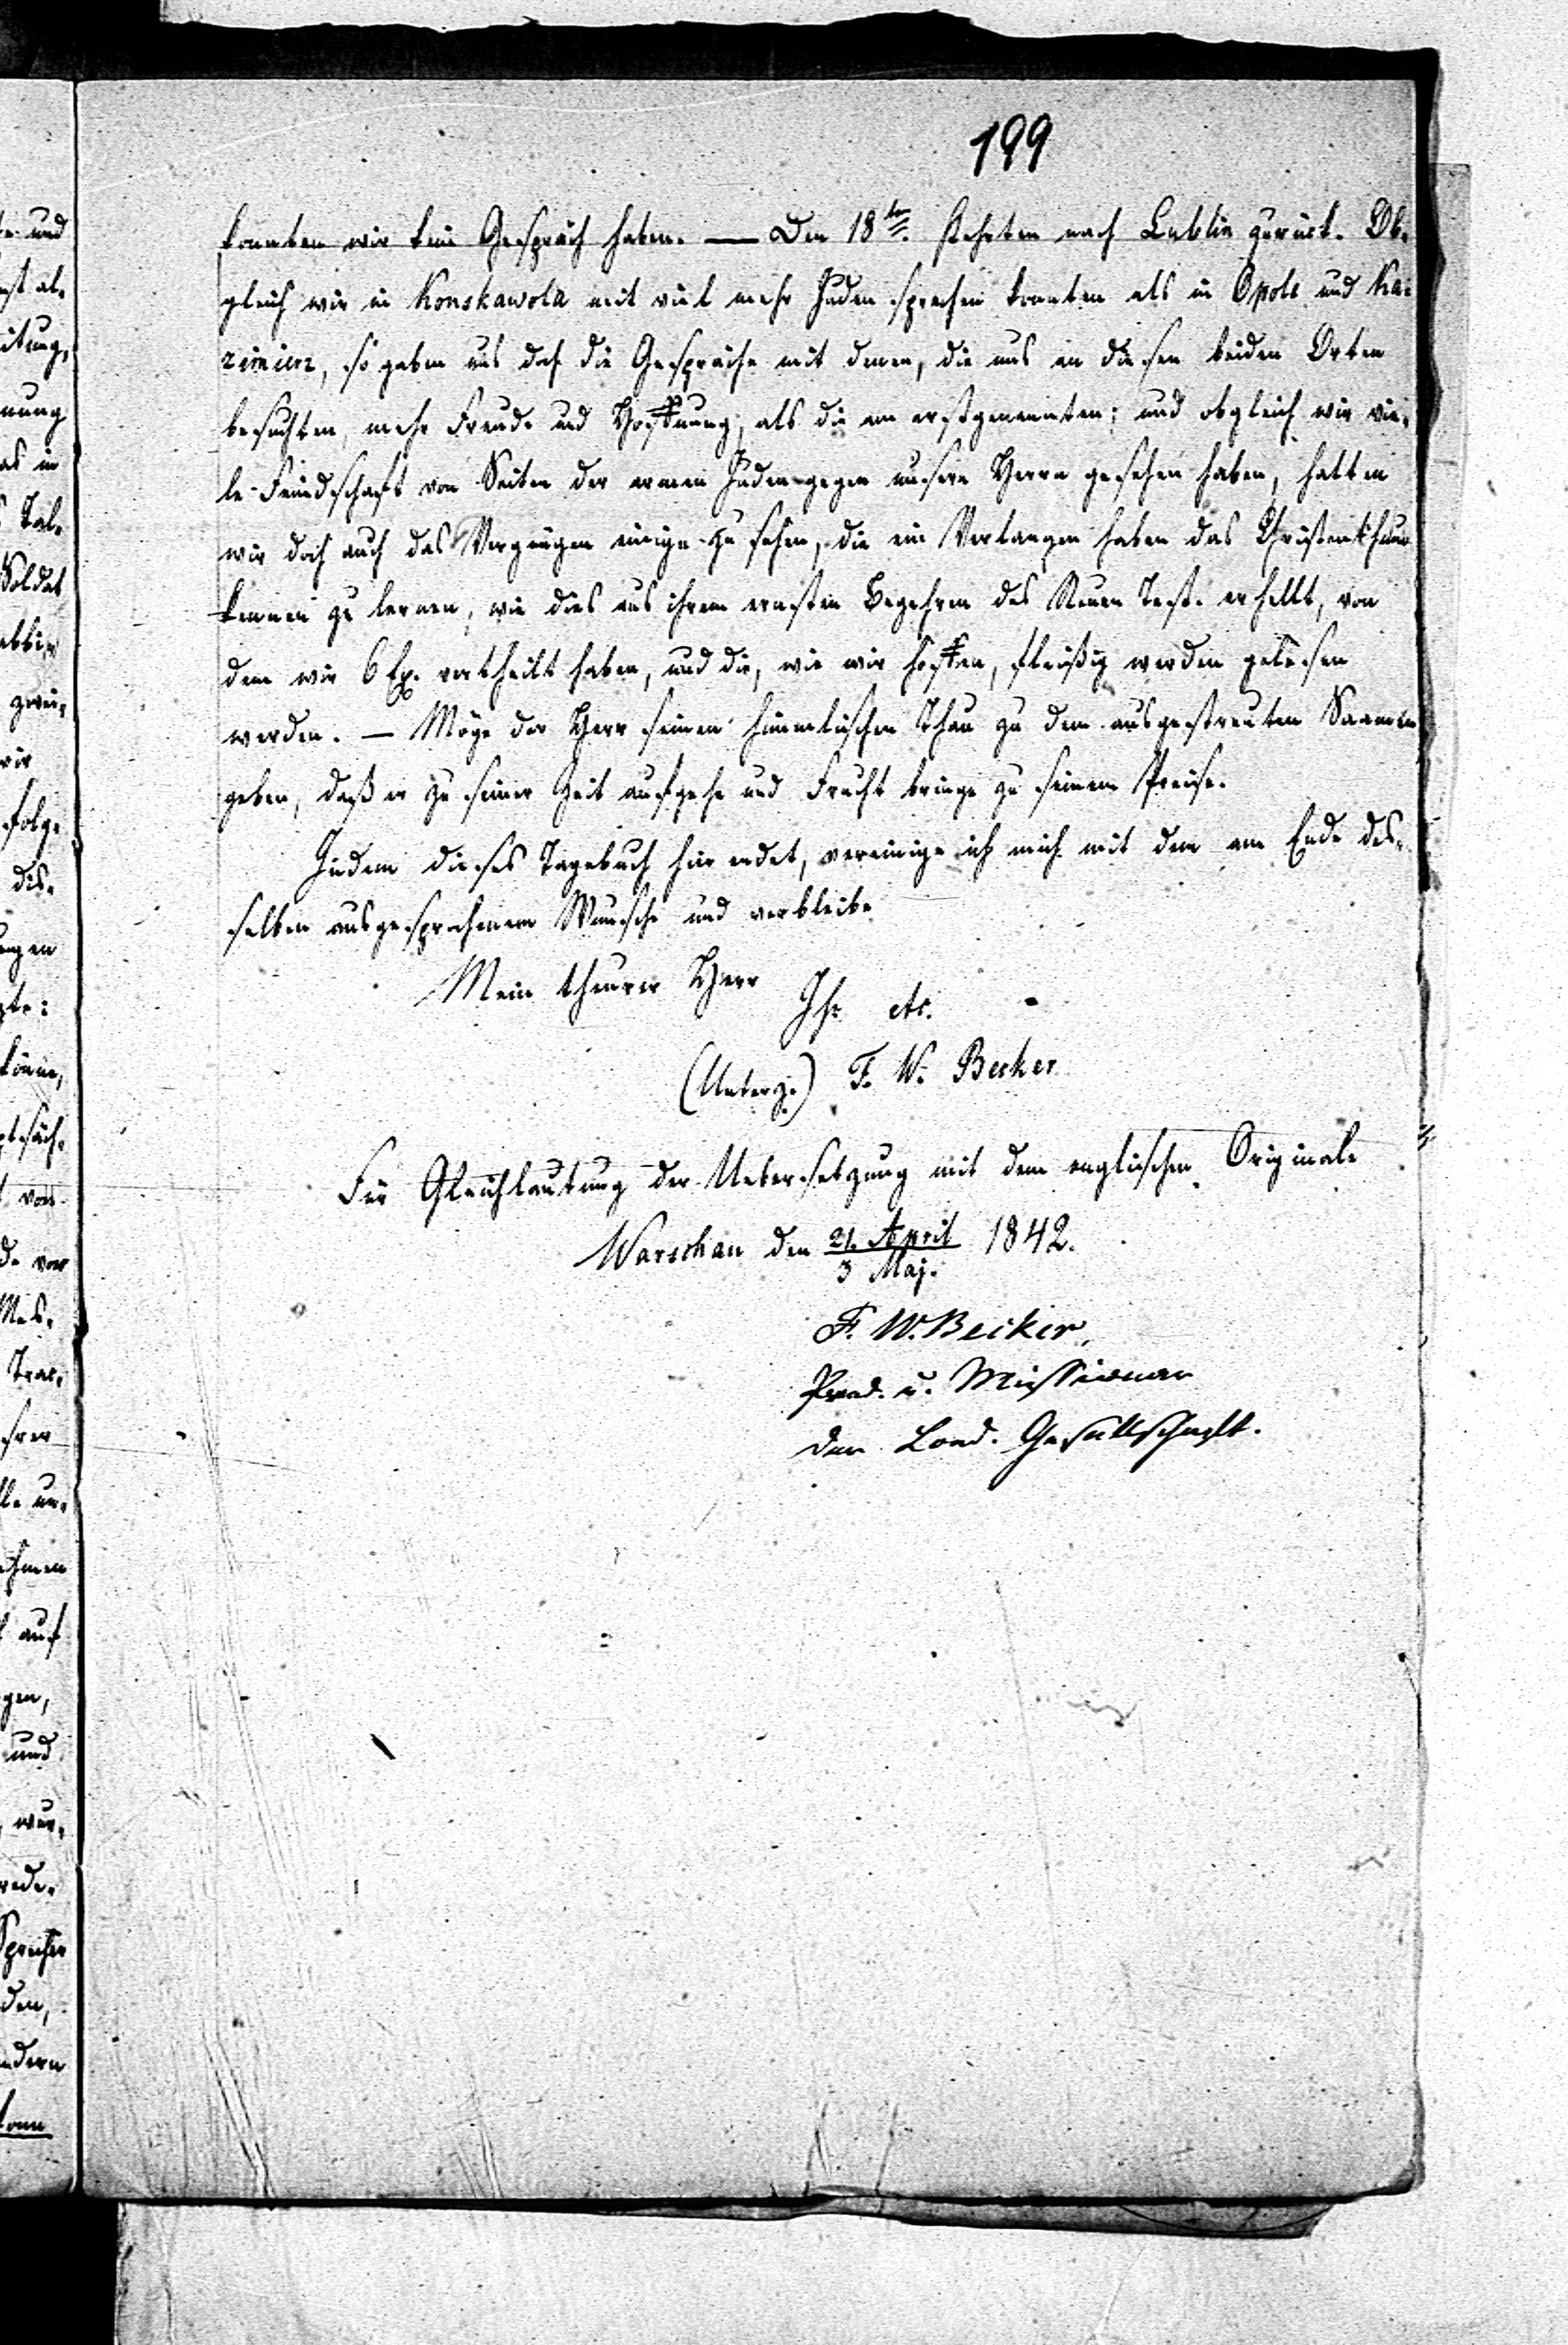 199
konnten wir kein Gespräch haben. — Den 18ten. kehrten nach Lublin zurück. Ob-
gleich wir in Konskawola mit viel mehr Juden sprechen konnten als in Opole und Ka-
zimierz, so gaben uns doch die Gespräche mit denen, die uns an diesen beiden Orten
besuchten, mehr Freude und Hoffnung, als die am erstgenannten; und obgleich wir vie-
le Feindschaft von Seiten der armen Juden gegen unsern Herrn gesehen haben, hatten
wir doch auch das Vergnügen einige zu sehen, die ein Verlangen haben das Christenthum
kennen zu lernen, wie dies aus ihrem ernsten Begehren des Neuen Test. erhellt, von
dem wir 6 Ex. vertheilt haben, und die, wie wir hoffen, fleißig werden gelesen
werden. — Möge der Herr seinen himmlischen Thau zu dem ausgestreuten Saamen
geben, daß er zu seiner Zeit aufgehe und Frucht bringe zu seinem Preise.
Indem dieses Tagebuch hier endet, vereinige ich mich mit dem am Ende des-
selben ausgesprochenen Wunsche und verbleibe
Mein theurer Herr
Ihr etc.
(Unterz.) F. W. Becker
Für Gleichlautung der Uebersetzung mit dem englischen Originale
Warschau den 21. April / 3 Maj. 1842.
F. W. Becker,
Pred. u. Missionar
der Lond. Gesellschaft.